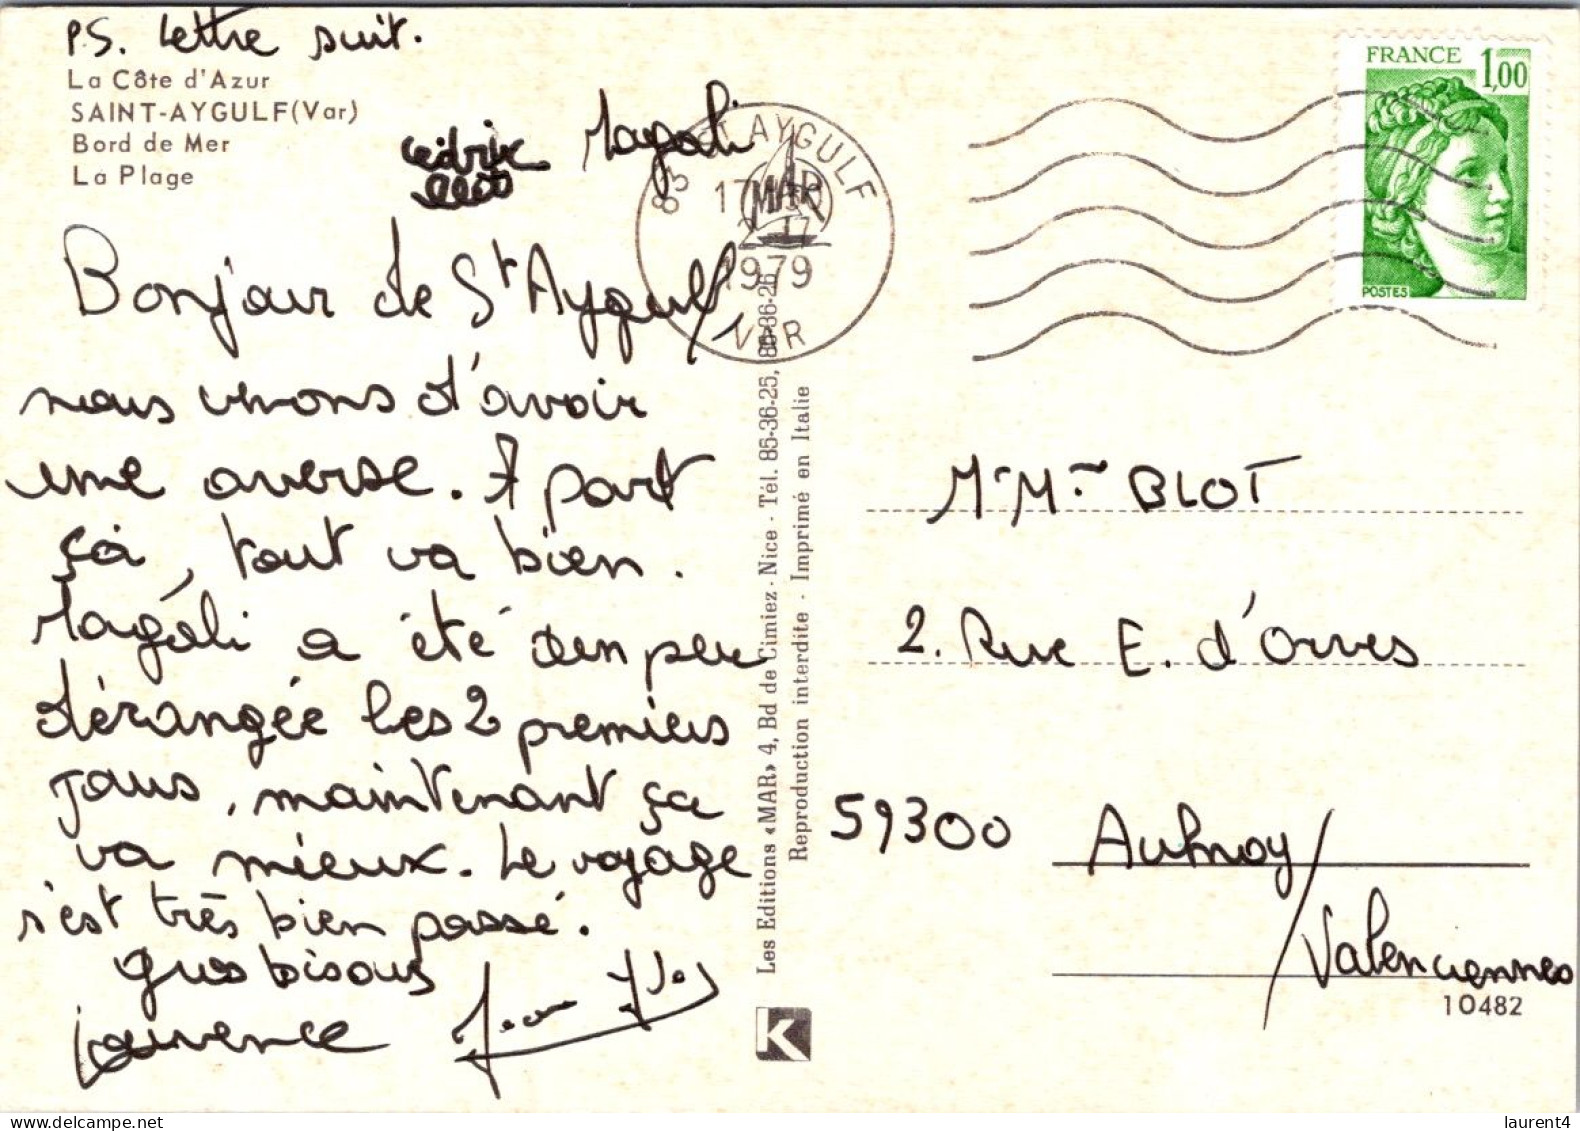 P.S. Lettre suit.
La Côte d'Azur
SAINT-AYGULF (Var)
Bord de Mer
La Plage
Cédric
Magali
Bonjour de St Aygulf,
nous venons d'avoir
une averse. A part
ça, tout va bien.
Magali a été un peu
dérangée les 2 premiers
jours, maintenant ça
va mieux. Le voyage
s'est très bien passé.
gros bisous
Laurence Jean Yves
Les Editions «MAR» 4, Bd de Cimiez - Nice - Tél. 85-36-25, 89-36-26
Reproduction interdite - Imprimé en Italie
K
MAR
83 ST AYGULF
17
17
1979
VAR
FRANCE 1,00
POSTES
Mr Me BLOT
2. Rue E. d'Orves
59300 Aulnoy/
Valenciennes
10482
laurent4